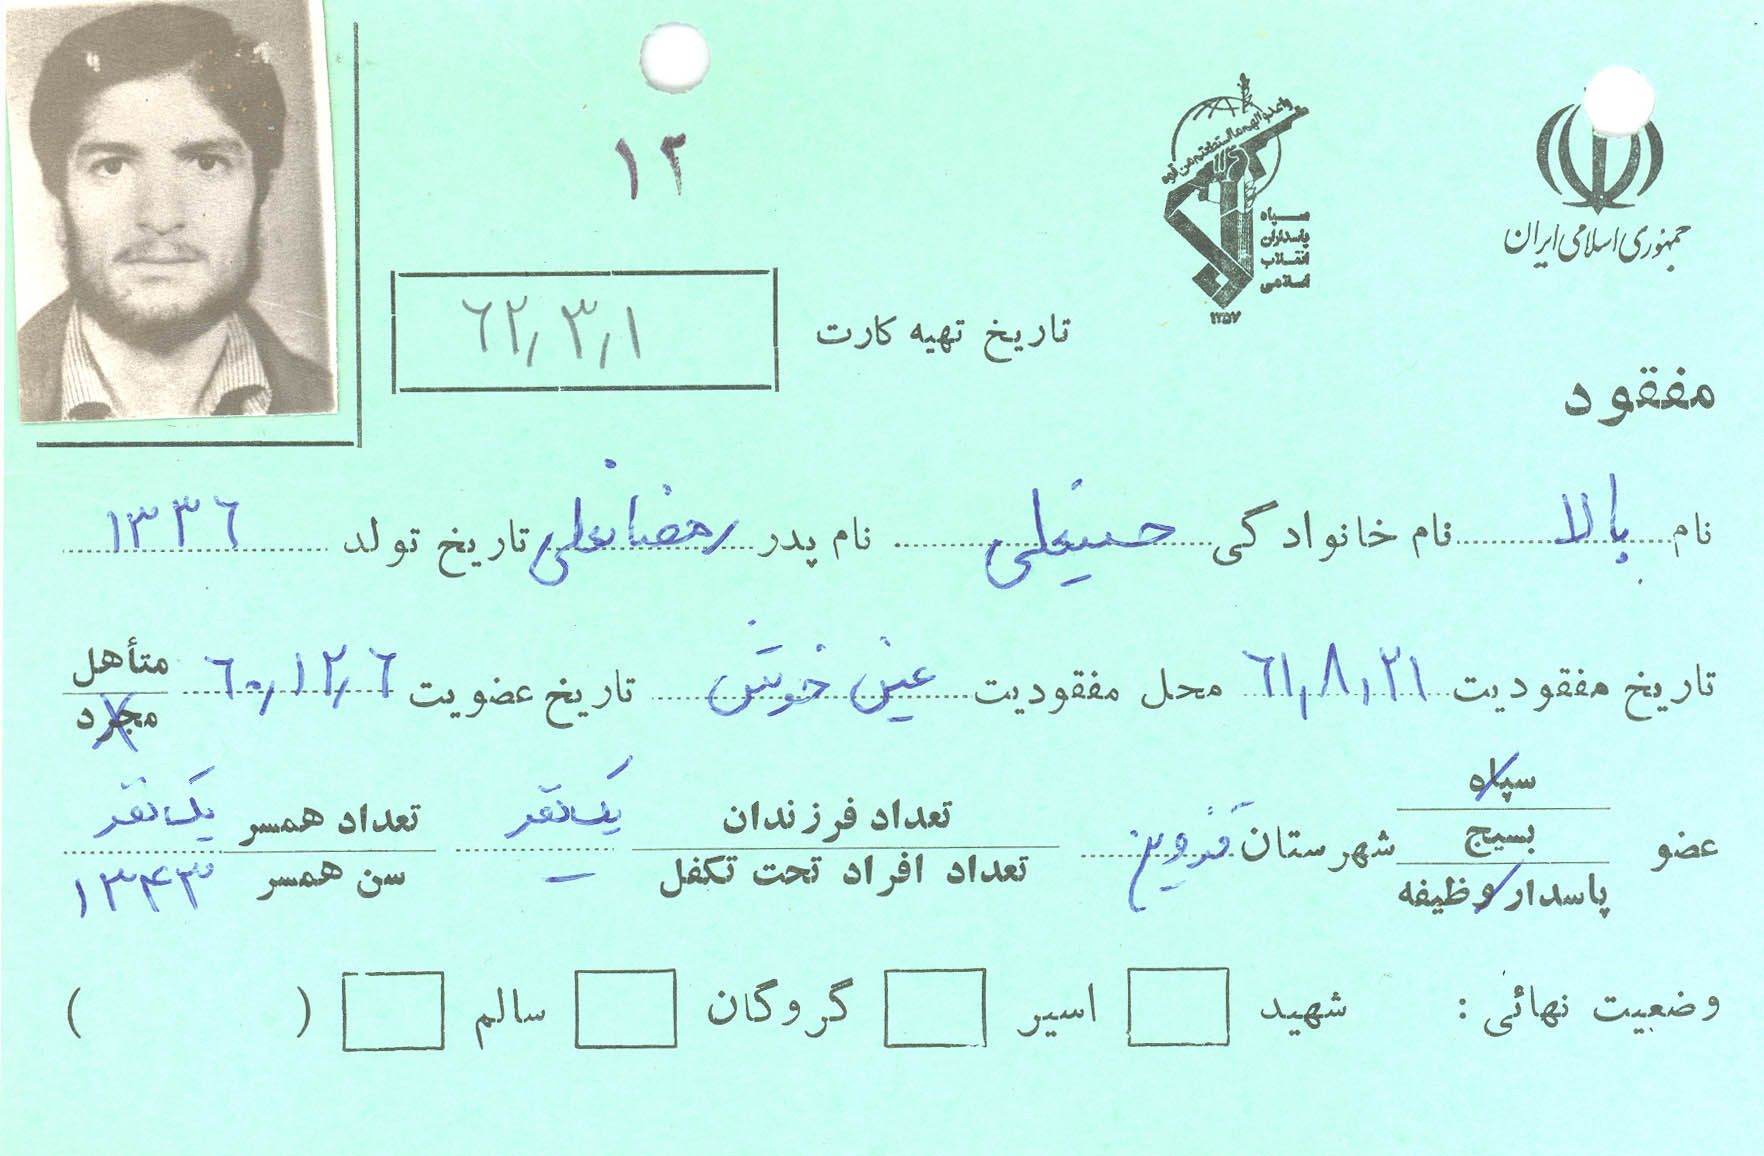 ۱۲
واعدوا لهم ما استطعتم من قوه
سپاه
پاسداران
انقلاب
اسلامی
۱۳۵۷
جمهوری اسلامی ایران
تاریخ تهیه کارت ۶۲/۳/۱
مفقود
نام بالا نام خانوادگی حسینعلی نام پدر رمضانعلی تاریخ تولد ۱۳۳۶
تاریخ مفقودیت ۶۱/۸/۲۱ محل مفقودیت عین خوش تاریخ عضویت ۶۰/۱۲/۶ متأهل مجرد
عضو سپاه بسیج پاسدار وظیفه شهرستان قزوین تعداد فرزندان یک نفر تعداد افراد تحت تکفل — تعداد همسر یک نفر سن همسر ۱۳۴۳
وضعیت نهائی : شهید اسیر گروگان سالم ( )